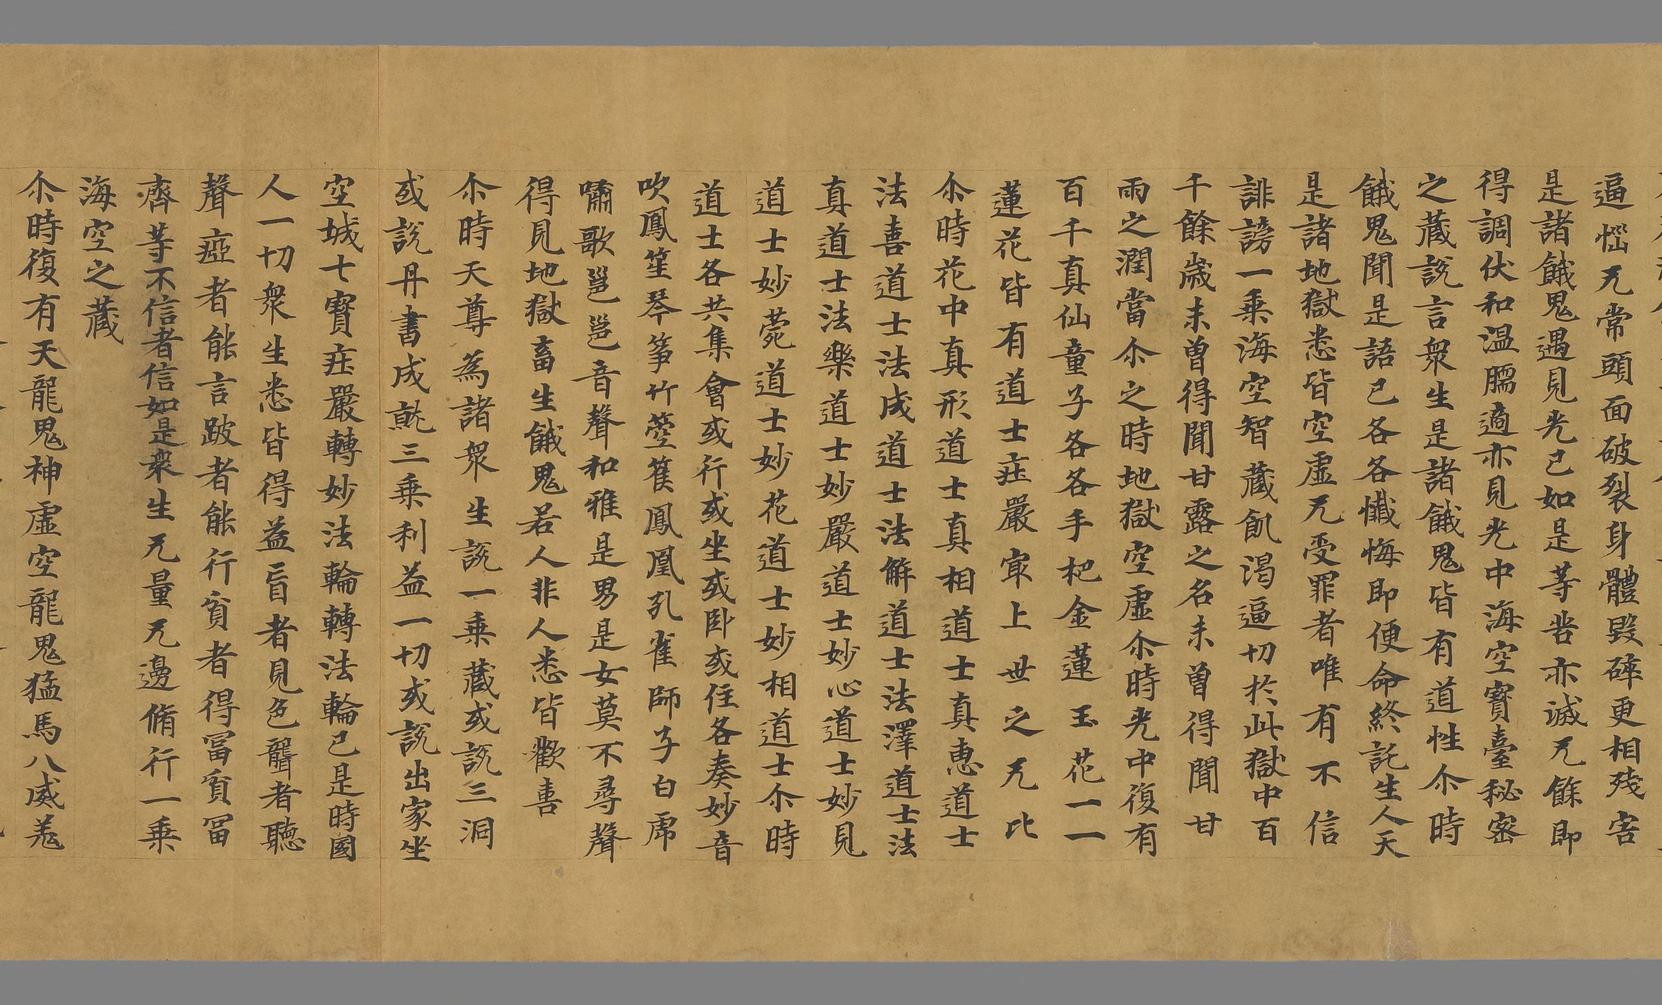 逼惱无常頭面破裂身體毀碎更相殘害
是諸餓鬼遇見光已如是等苦亦滅无餘即
得調伏和温臑適亦見光中海空寳臺秘密
之藏說言衆生是諸餓鬼皆有道性尒時
餓鬼聞是語已各各懺悔即便命終託生人天
是諸地獄悉皆空虛无受罪者唯有不信
誹謗一乗海空智藏飢渴逼切於此獄中百
千餘歲未曾得聞甘露之名未曾得聞甘
雨之潤當尒之時地獄空虛尒時光中復有
百千真仙童子各各手杷金蓮玉花一一
蓮花皆有道士庄嚴㝡上世之无比
尒時花中真形道士真相道士真惠道士
法喜道士法成道士法解道士法澤道士法
真道士法樂道士妙嚴道士妙心道士妙見
道士妙菀道士妙花道士妙相道士尒時
道士各共集會或行或坐或卧或住各奏妙音
吹鳳笙琴筝竹箜篌鳳凰孔雀師子白虎
嘯歌邕邕音聲和雅是男是女莫不尋聲
得見地獄畜生餓鬼若人非人悉皆歡喜
尒時天尊為諸衆生說一乗藏或說三洞
或說丹書成就三乗利益一切或說出家坐
空城七寳庄嚴轉妙法輪轉法輪已是時國
人一切衆生悉皆得益盲者見色聾者聽
聲瘂者能言跛者能行貧者得冨貧冨
齊等不信者信如是衆生无量无邊脩行一乗
海空之藏
尒時復有天龍鬼神虛空龍鬼猛馬八威羗